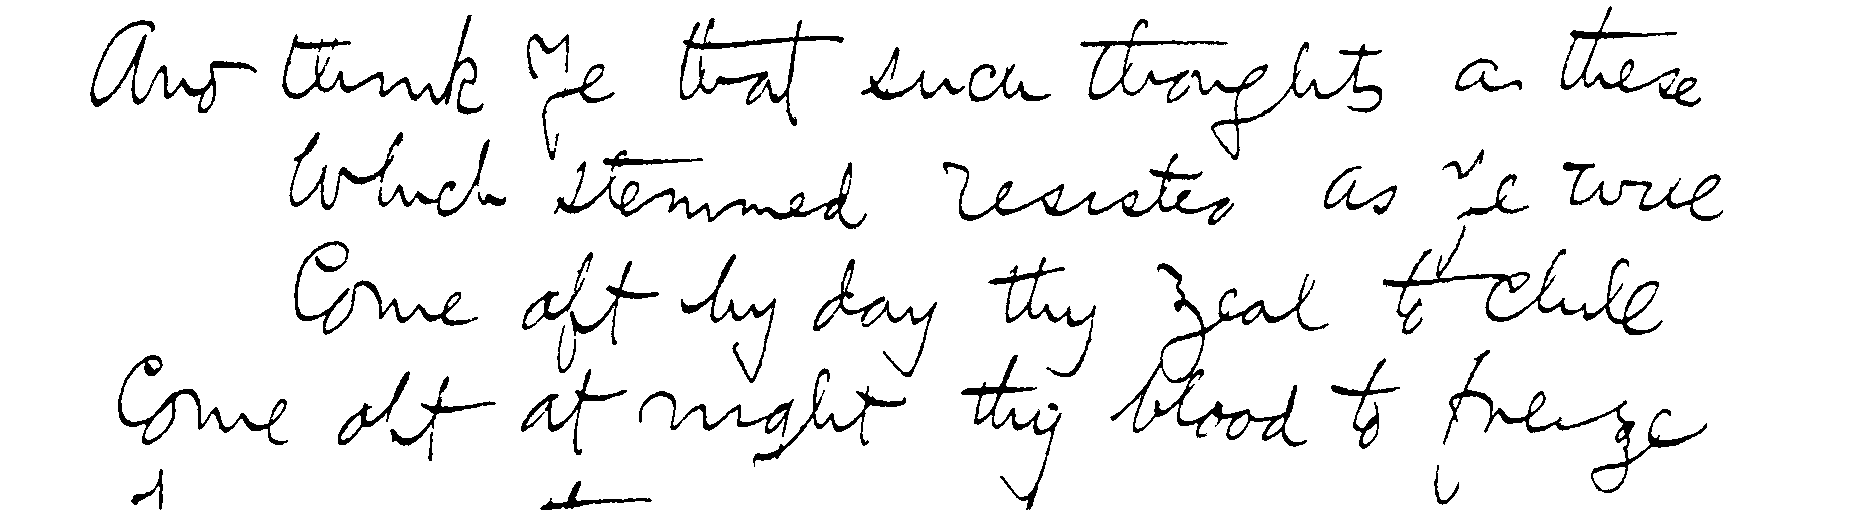 And think Ye that such thoughts as these
Which stemmed resisted as Ye will
Come oft by day thy zeal to chill
Come oft at night thy blood to freeze